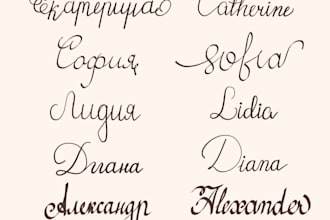 Екатерина Catherine
София Sofia
Лидия Lidia
Диана Diana
Александр Alexander